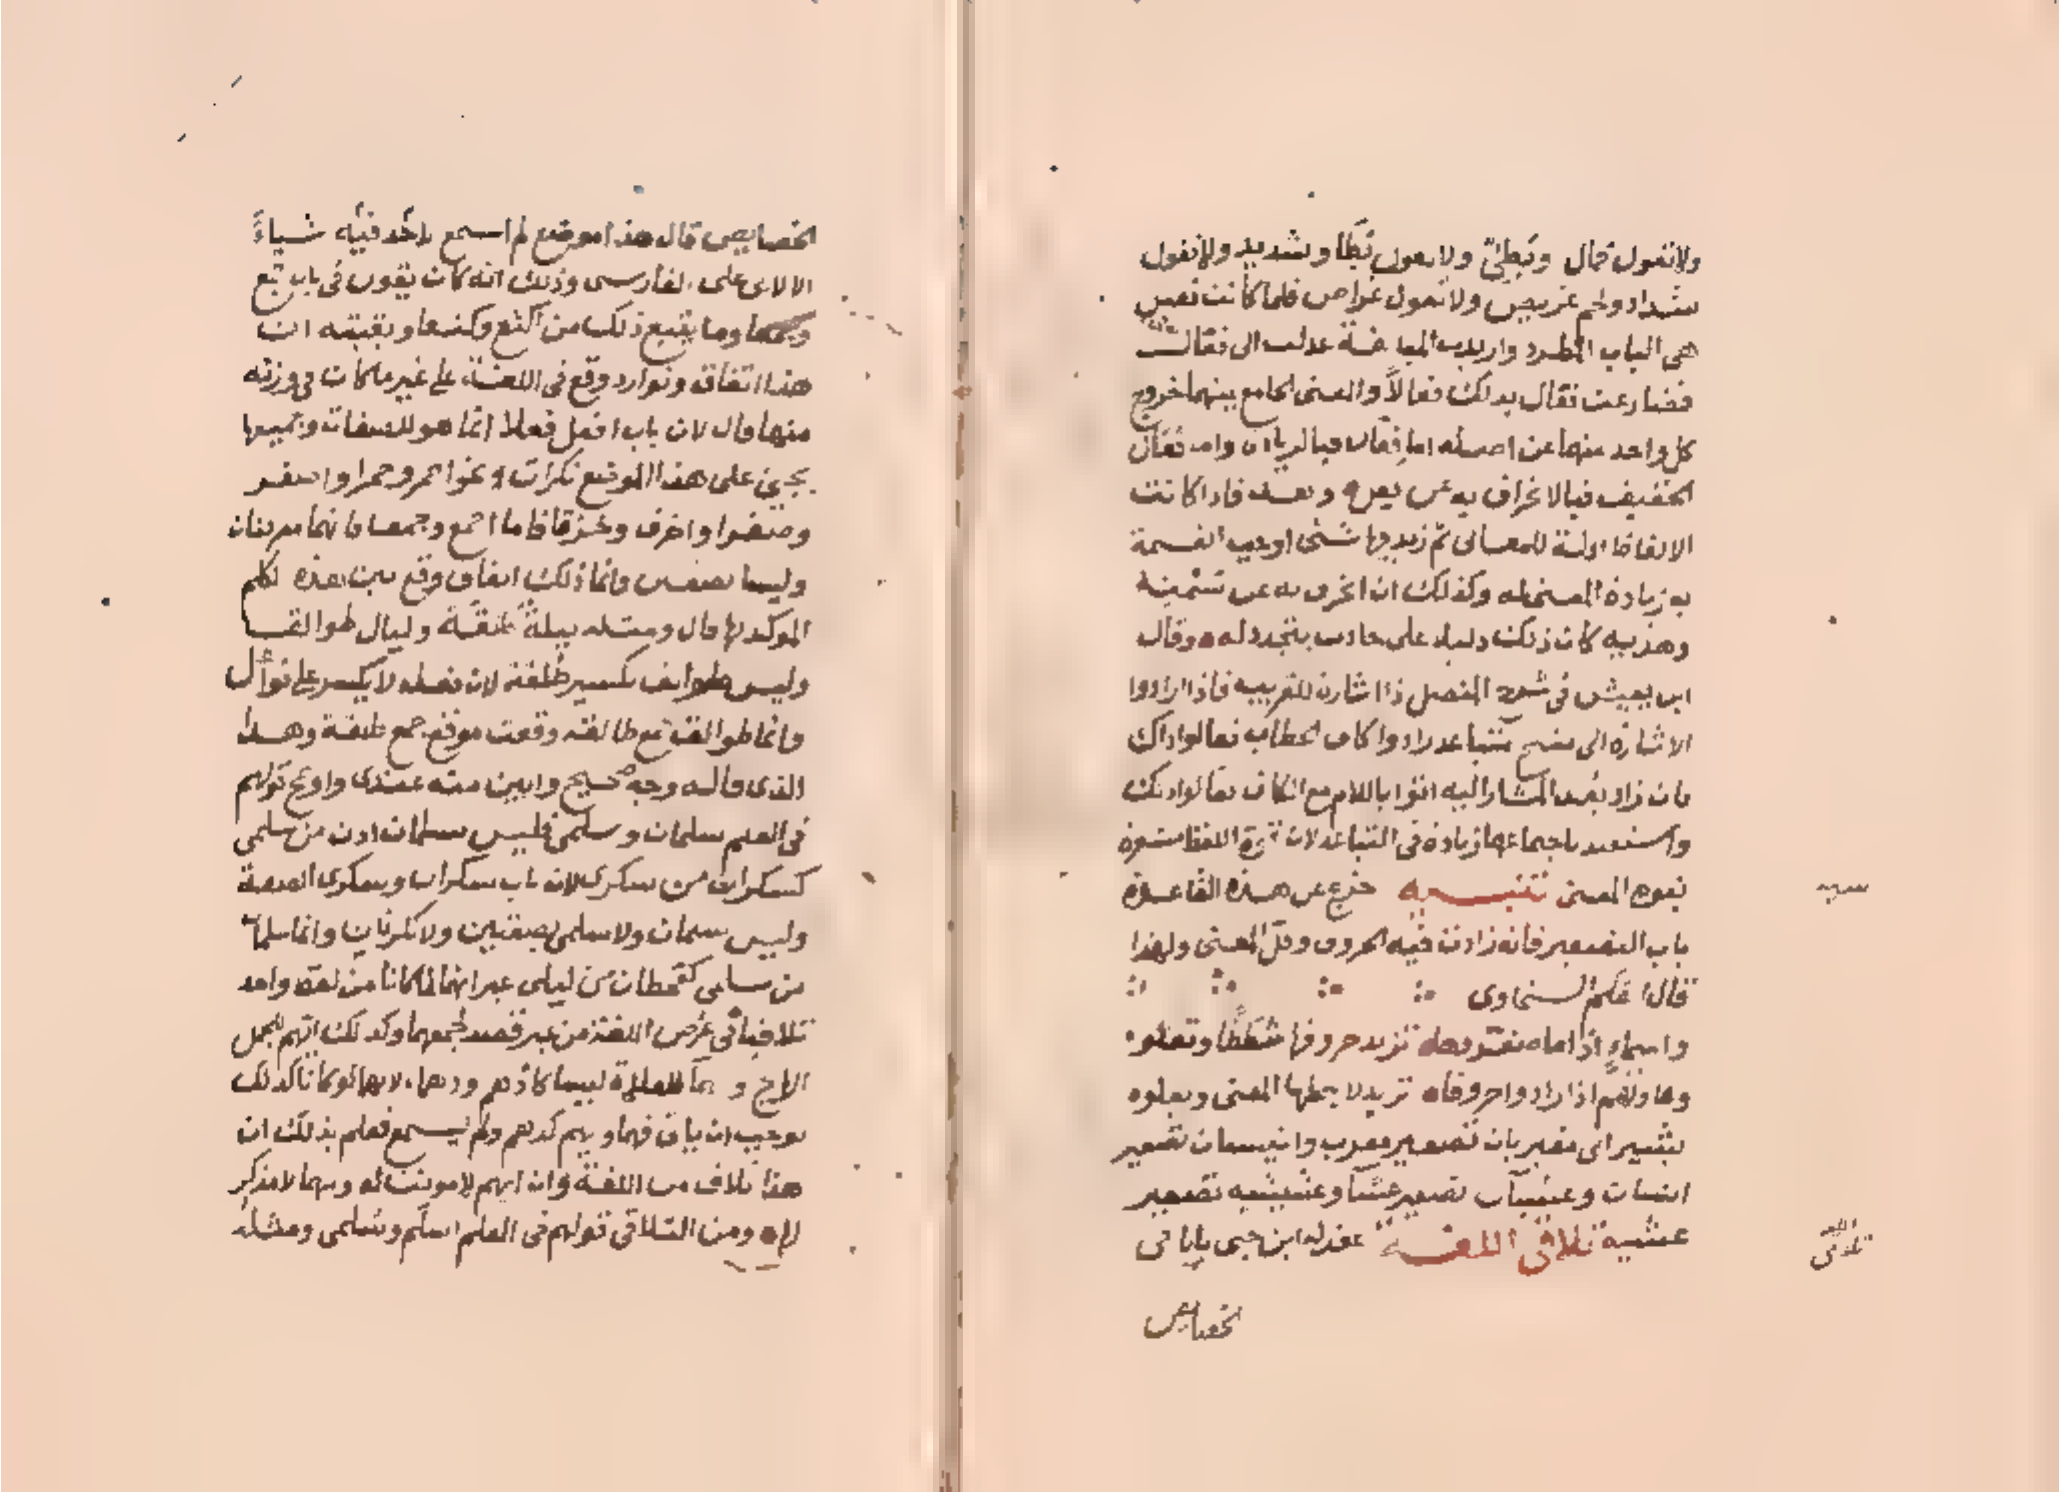 ولا تقول جمال وبطئ ولا يقول بطا وشديد ولا يقول
شداد ولحم غريض ولا تقول غراض فلما كانت فعيل
هي الباب المطرد واريدت المبالغة عدلت الى فعال
فضارعت فعال بذلك فعالا والمعنى الجامع بينهما خروج
كل واحد منهما عن اصله اما فعال فبالزيادة واما فعال
الخفيف فبالانحراف به عن فعيل وبعد فاذا كانت
الالفاظ ادلة للمعانى ثم زيد فيها شئ اوجبت القسمة
به زيادة المعنى له وكذلك ان انحرف به عن سمته
وهديه كان ذلك دليلا على حادث يتجدد له وقال
ابن يعيش فى شرح المفصل ذا اشارة للقريب فاذا ارادوا
الاشارة الى متنح متباعد زادوا كاف الخطاب فقالوا ذاك
فان زاد بعد المشار اليه اتوا باللام مع الكاف فقالوا ذلك
واستفيد باجتماعهما زيادة فى التباعد لان قوة اللفظ مشعرة
بقوة المعنى تنبيه خرج عن هذه القاعدة
باب التصغير فانه زادت فيه الحروف وقل المعنى ولهذا
قال العلم السخاوى
واسماء اذا ما صغروها تزيد حروفها شططا وتعلو
وعادتهم اذا زادوا حروفا تزيد لاجلها المعنى وتعلو
يشير الى مغيربان تصغير مغرب وانيسيان تصغير
انسان وعشيشيان تصغير عشيا وعشيشيه تصغير
عشية تلاقى اللغة عقد له ابن جنى بابا فى
الخصايص
تنبيه
تلاقى اللغة
الخصايص قال هذا موضع لم اسمع لاحد فيه شياء
الا لابى على الفارسى وذلك انه كان يقول فى باب اجمع
وجمعا وما يتبع ذلك من اكتع وكتعا وبقيته ان
هذا اتفاق وتوارد وقع فى اللغة على غير ما كان فى وزنه
منها قال لان باب افعل فعلا انما هو للصفات وجميعها
يجئ على هذا الموضع نكرات نحو احمر وحمرا واصفر
وصفرا واخرق وخرقا فاما اجمع وجمعا فانهما معرفتان
وليسا بصفتين فانما ذلك اتفاق وقع بين هذه الكلم
الموكد بها قال ومثله ليلة طلقة وليال طوالق
وليس طوالق تكسير طلقة لان فعله لا يكسر على فواعل
وانما طوالق جمع طالقة وقعت موقع جمع طلقة وهذا
الذى قاله وجه صحيح وابين منه عندى واوضح قولهم
فى العلم سلمان وسلمى فليس سلمان اذن من سلمى
كسكران من سكرى لان باب سكران وسكرى الصفة
وليس سلمان ولا سلمى بصفتين ولا نكرتين وانما سلمان
من سلمى كقحطان من ليلى غير انهما لما كانا من لفظ واحد
تلاقيا فى عرض اللغة من غير قصد لجمعهما وكذلك ايهم للجمل
الهايج و يهما للفلاة ليسا كادهم ودهماء لانهما لو كانا كذلك
لوجب ان ياتى فيهما يهم كدهم ولم يسمع فعلم بذلك ان
هذا تلاق من اللغة وان ايهم لا مونث له ويهما لا مذكر
لها ومن التلاقى قولهم فى العلم اسلم وسلمى ومثله